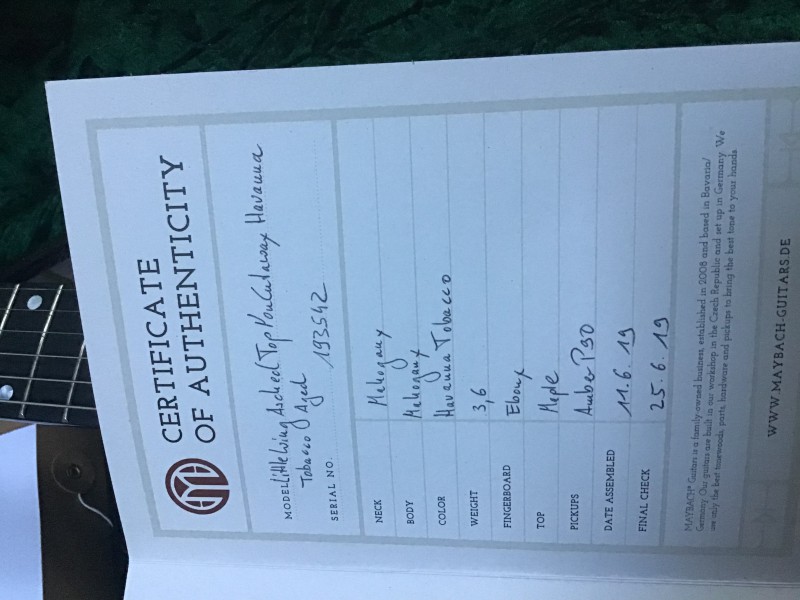 CERTIFICATE
OF AUTHENTICITY
MODEL Little Wing Arched Top Non Cutaway Havanna
Tobacco Aged
SERIAL NO. 193542
NECK Mahogany
BODY Mahogany
COLOR Havanna Tobacco
WEIGHT 3,6
FINGERBOARD Ebony
TOP Maple
PICKUPS Amber P90
DATE ASSEMBLED 11.6.19
FINAL CHECK 25.6.19
MAYBACH® Guitars is a family-owned business, established in 2008 and based in Bavaria/
Germany. Our guitars are built in our workshop in the Czech Republic and set up in Germany. We
use only the best tonewoods, parts, hardware and pickups to bring the best tone to your hands
WWW.MAYBACH-GUITARS.DE